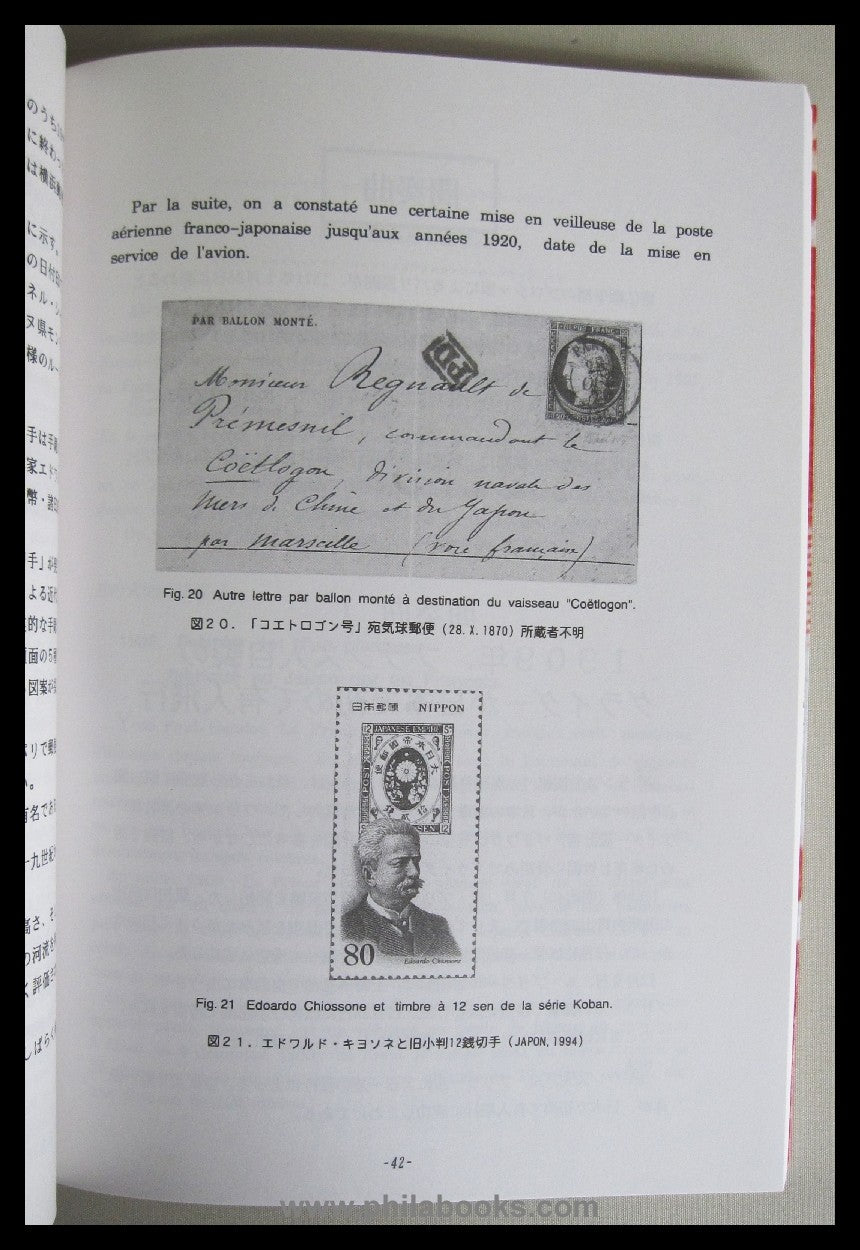 のうち
に終わっ
は横浜
に示す。
の日付
ネル・
ヌ県モン
様のルー
手は手
家エド
幣・諸
手」が
よる近
的な手
面の5
図案が
りで郵
有名であ
十九世紀
高さ、そ
の河流を
く評価さ
しばらく
Par la suite, on a constaté une certaine mise en veilleuse de la poste
aérienne franco-japonaise jusqu'aux années 1920, date de la mise en
service de l'avion.
PAR BALLON MONTÉ.
PD
REPUB FRANC
Monsieur Regnault de
Prémesnil, commandant le
Coëtlogon, division navale des
Mers de Chine et du Japon
par Marseille (voie française)
Fig. 20 Autre lettre par ballon monté à destination du vaisseau "Coëtlogon".
図20. 「コエトロゴン号」宛気球郵便 (28. X. 1870) 所蔵者不明
日本郵便 NIPPON
12 JAPANESE EMPIRE Sn
大日本帝國郵便
POST
SEN
80
Edoardo Chiossone
Fig. 21 Edoardo Chiossone et timbre à 12 sen de la série Koban.
図21. エドワルド・キヨソネと旧小判12銭切手 (JAPON, 1994)
-42-
www.philabooks.com